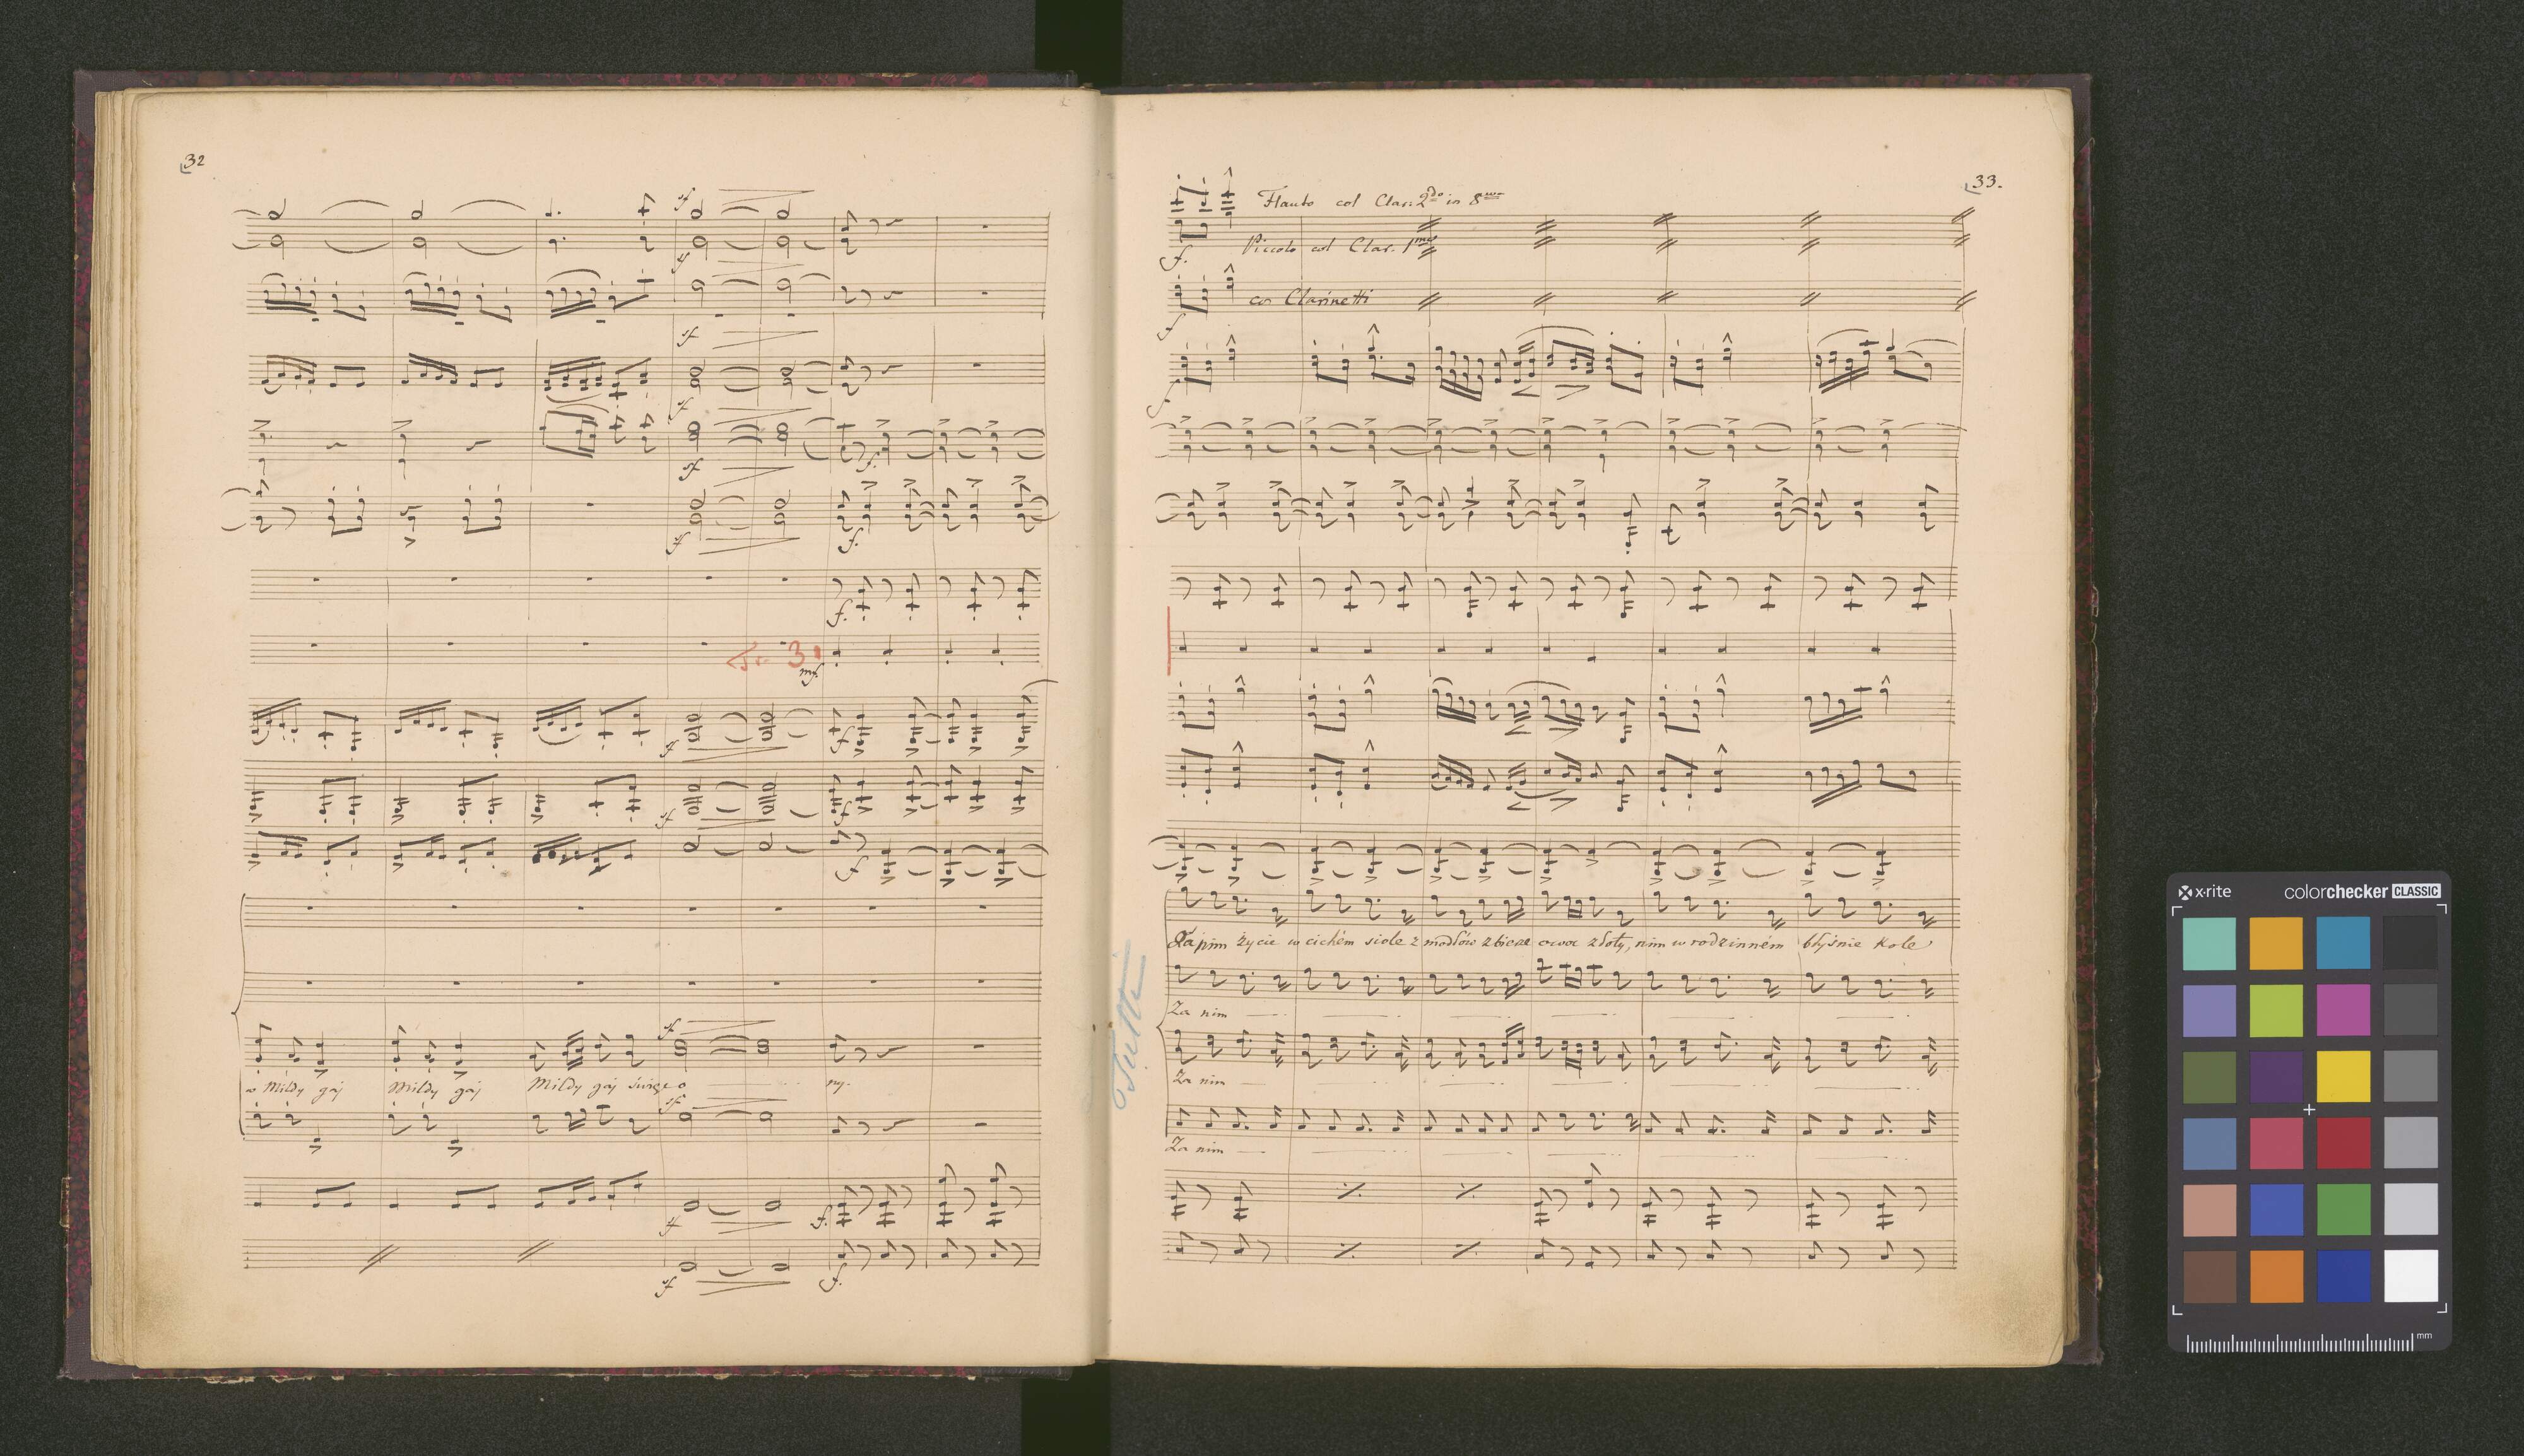 32
sf
sf
sf
sf
sf
sf
f.
f.
f.
Tr. 3
mf
sf
f
sf
f
f
sf
a Mildy gaj Mildy gaj Mildy gaj święco ny.
sf
sf
f.
sf
f.
33.
Flauto col Clar: 2do in 8va
Piccolo col Clar. 1mo
f.
co Clarinetti
f
f.
Tutti
nim życie w cichém siole z modłów zbierze owoc złoty, nim w rodzinném błyśnie kole
Za nim
Za nim
Za nim
x·rite colorchecker CLASSIC
mm